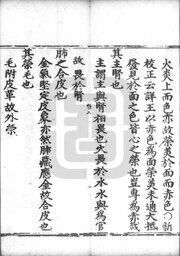 火炎上而色赤故榮美於面而赤色○新
校正云詳王以赤色爲面榮美未通大抵
發見於面之色皆心之榮也豈專爲赤哉
其主腎也
主謂主與腎相畏也火畏於水水與爲官
故畏於腎
肺之合皮也
金氣堅定皮象亦然肺藏應金故合皮也
其榮毛也
毛附皮革故外榮